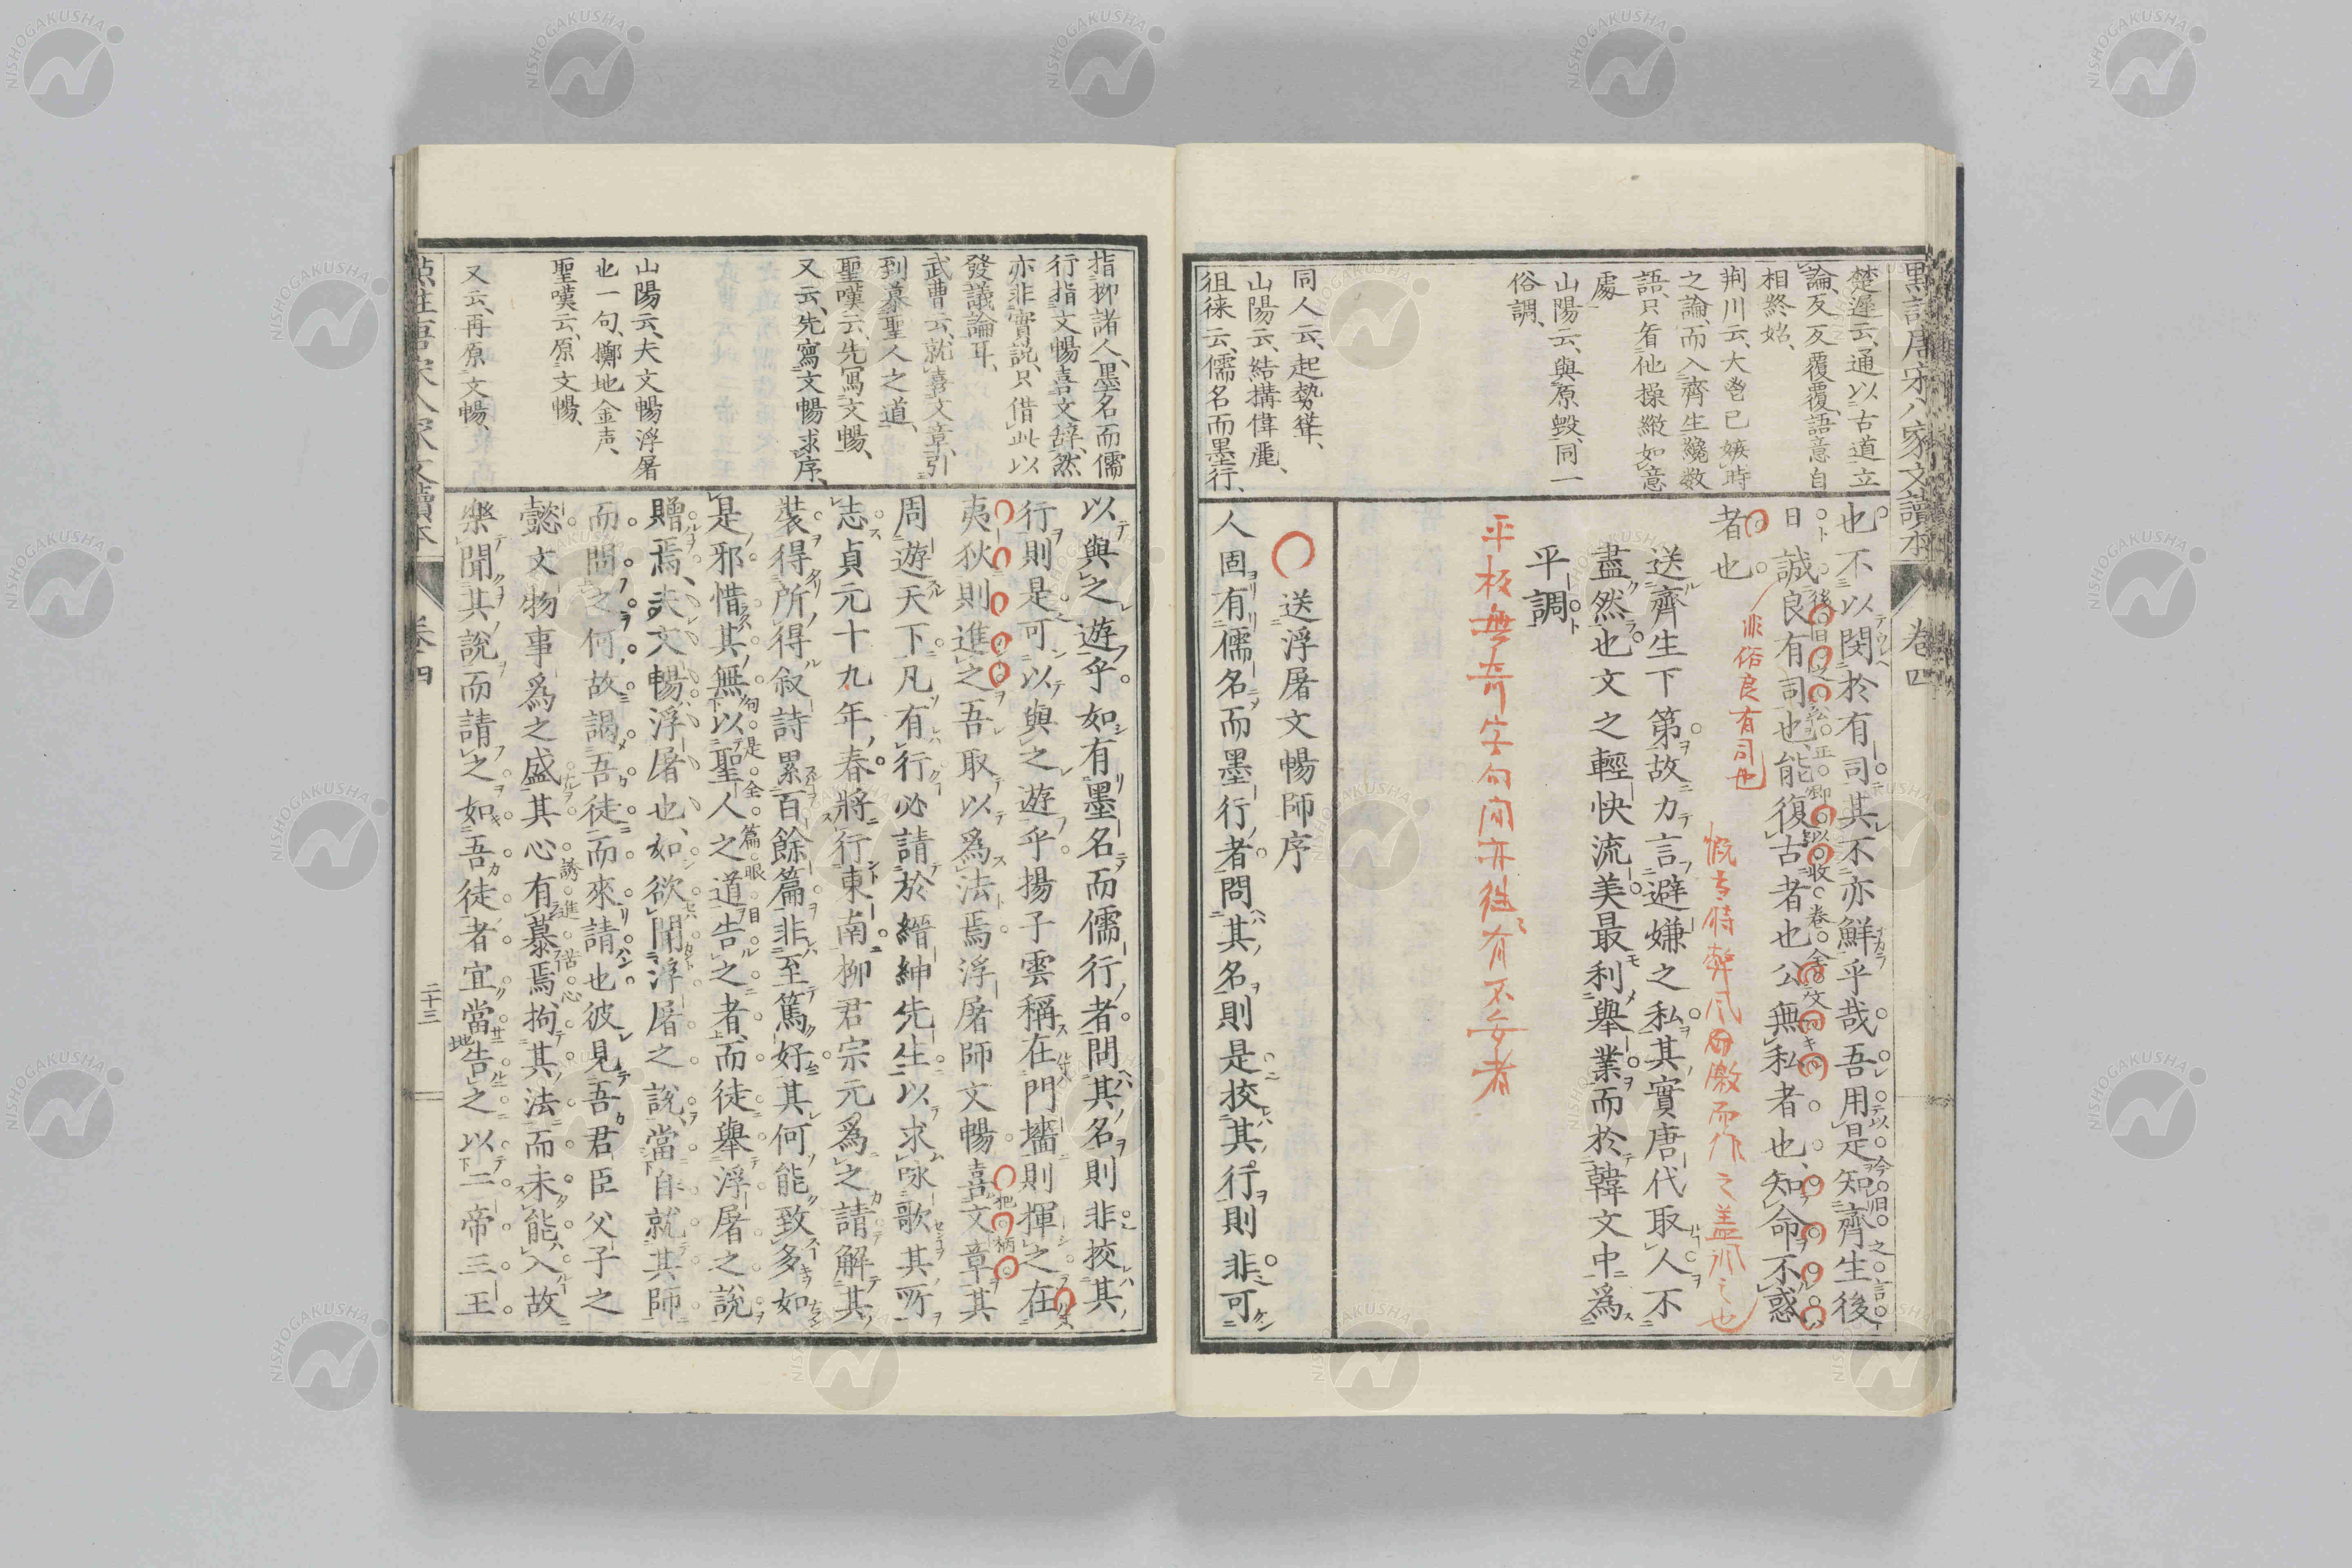 點註唐宋八家文讀本
卷四
楚遲云、通以古道立
論、反反覆覆、語意自
相終始、
荊川云、大
之論、而入齊生纔数
語、只看他操縱如意
處
山陽云、與原毀、同一
俗調、
同人云、起勢
山陽云、結構偉麗、
徂徠云、儒名而墨行、
也不以閔於有司其不亦鮮乎哉吾用是知齊生後
日誠良有司也、能復古者也公無私者也、知命不惑
者也
非俗良有司也
送齊生下第故力言避嫌之私其實唐代取人不
盡然也文之輕快流美最利舉業而於韓文中為
平調
平板無奇字句間亦往〻有不妥者
送浮屠文暢師序
人固有儒名而墨行者問其名則是挍其行則非可
指柳諸人、墨名而儒
行、指文暢喜文辞、然
亦非實説、只借此以
發議論耳、
武曹云、就喜文章、引
到慕聖人之道、
聖嘆云、先寫文暢、
又云、先寫文暢求序、
山陽云、夫文暢浮屠
也一句、擲地金声、
聖嘆云、原文暢、
又云、再原文暢、
以與之遊乎如有墨名而儒行者問其名則非挍其
行則是可以與之遊乎揚子雲稱在門墻則揮之在
夷狄則進之吾取以為法焉浮屠師文暢喜文章其
周遊天下凡有行必請於縉紳先生以求咏歌其所
志貞元十九年春將行東南柳君宗元為之請解其
裝得所得敘詩累百餘篇非至篤好其何能致多如
是邪惜其無以聖人之道告之者而徒舉浮屠之說
贈焉、夫文暢浮屠也、如欲聞浮屠之說、當自就其師
而問之何故謁吾徒而來請也彼見吾君臣父子之
懿文物事為之盛其心有慕焉拘其法而未能入故
樂聞其說而請之如吾徒者宜當告之以二帝三王
點註唐宋八家文讀本
卷四
二十三